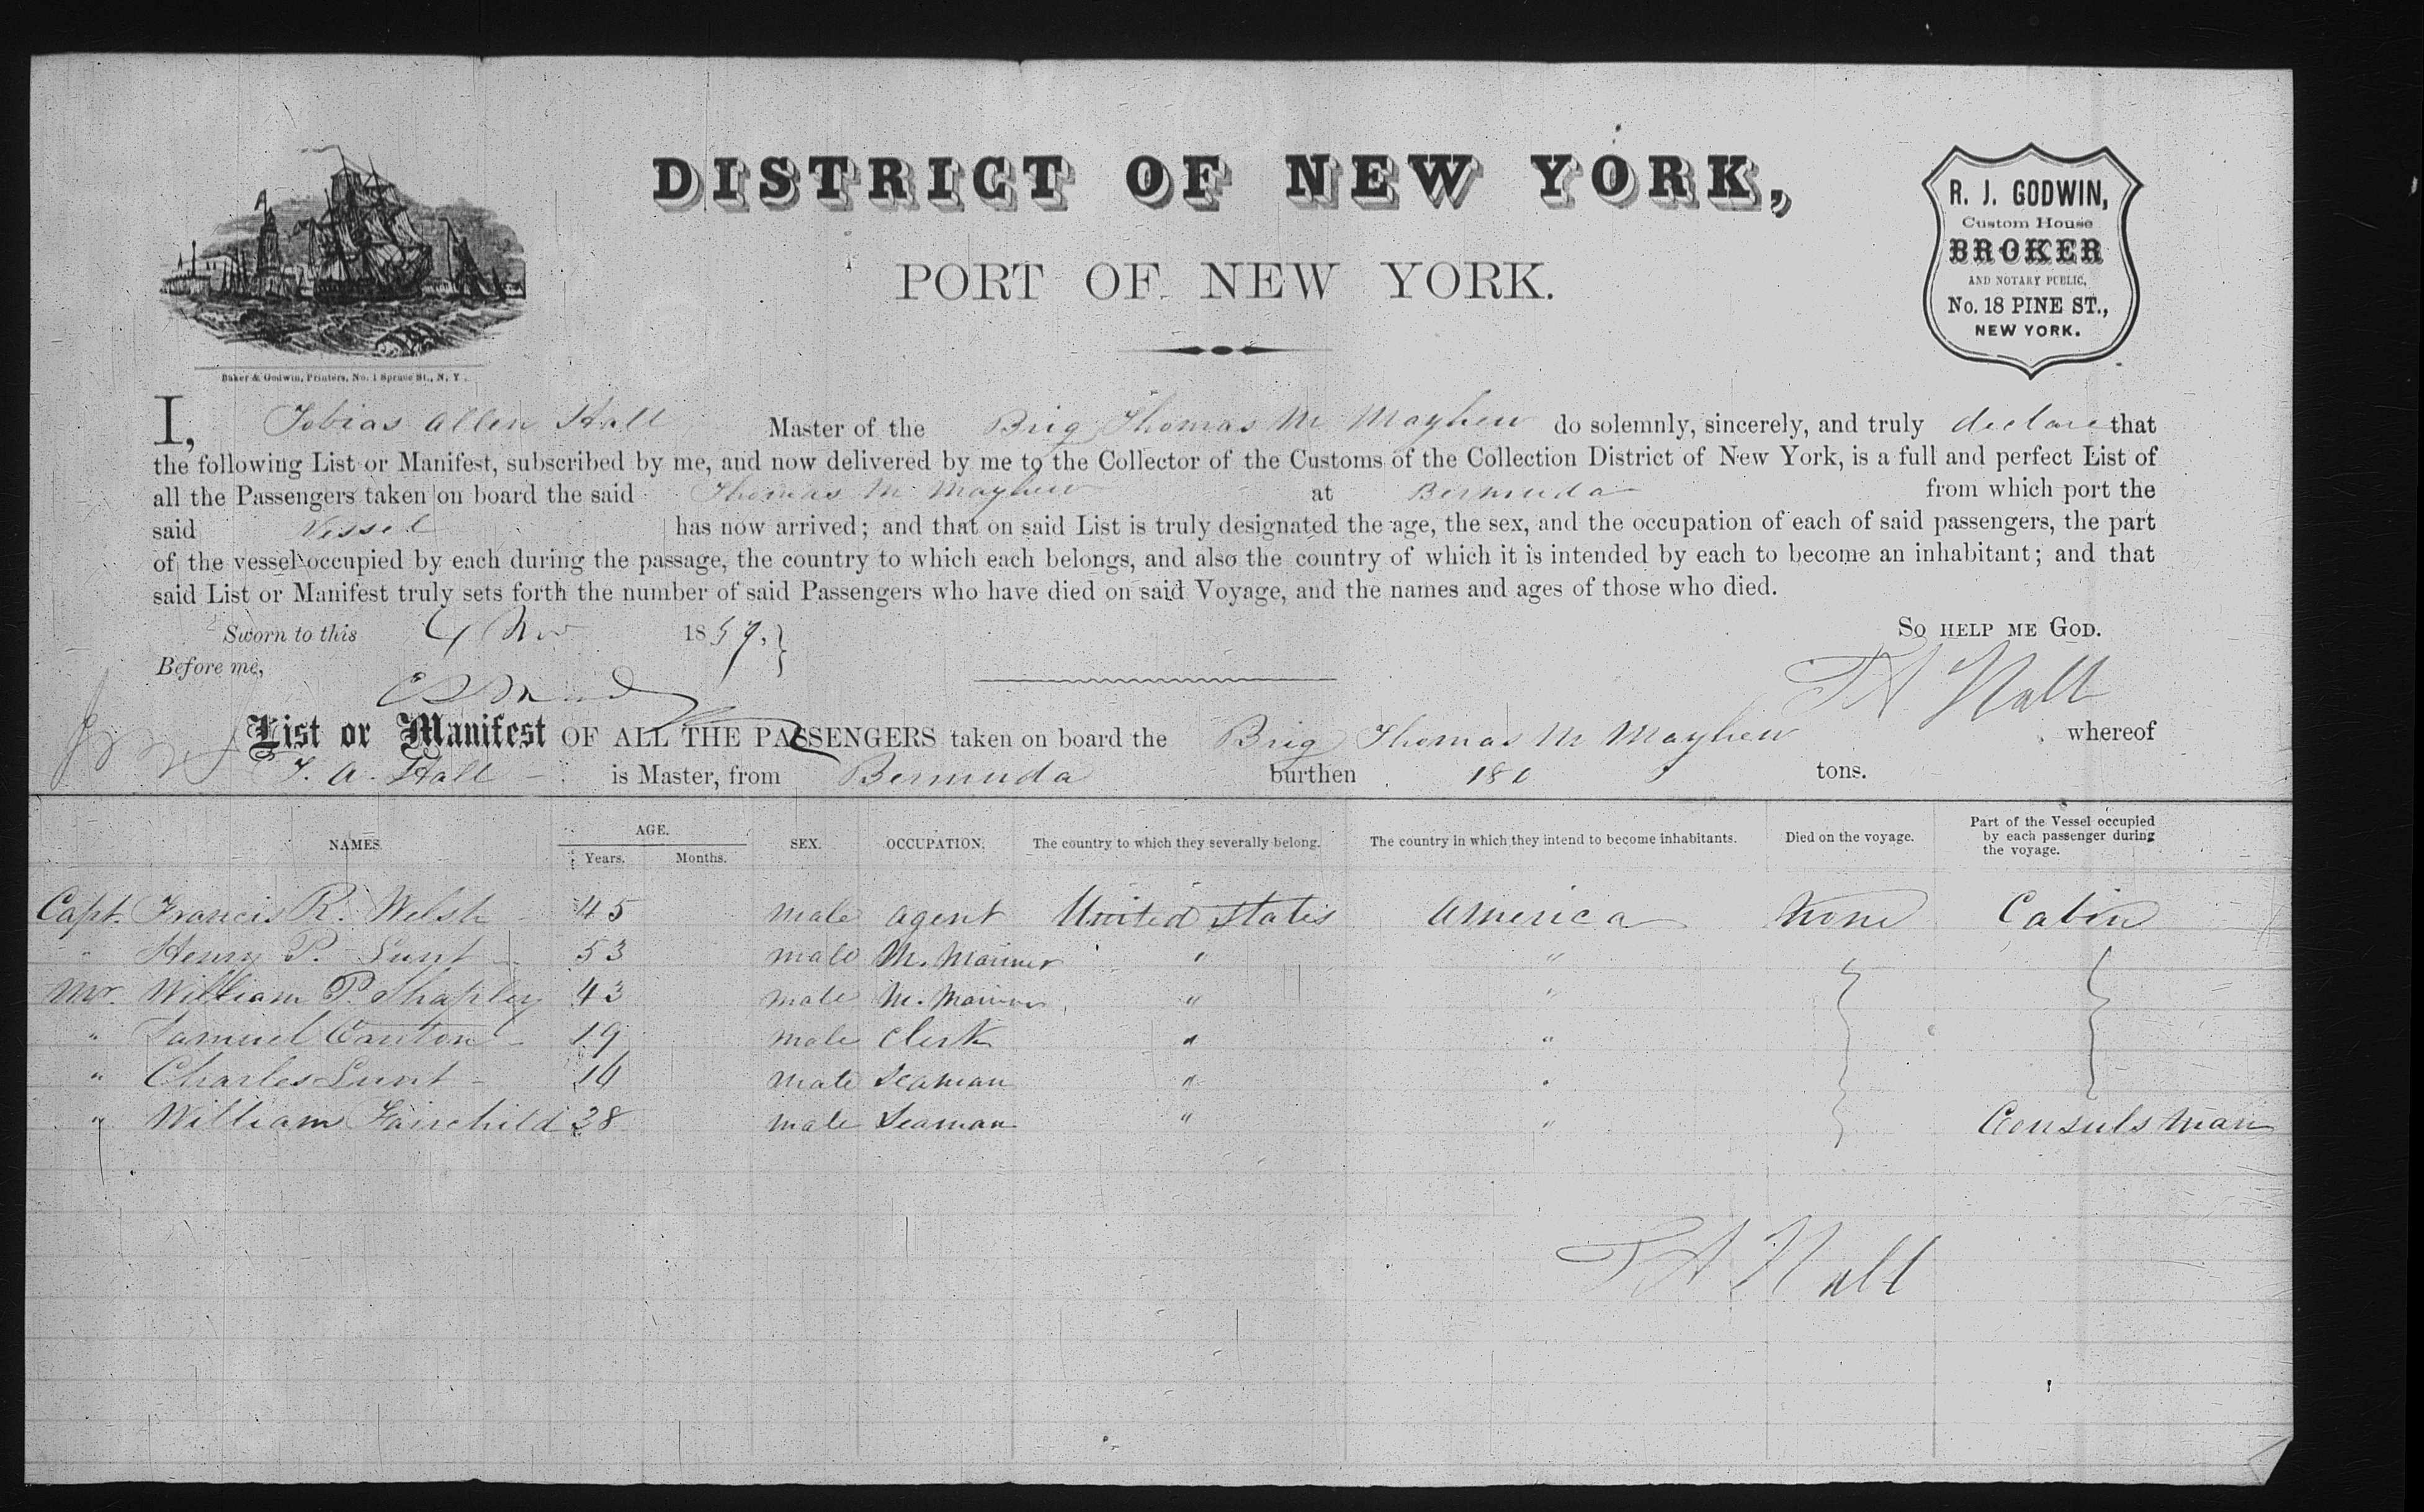 DISTRICT OF NEW YORK,
PORT OF NEW YORK.
R. J. GODWIN,
Custom House
BROKER
AND NOTARY PUBLIC,
No. 18 PINE ST.,
NEW YORK.
Baker & Godwin, Printers, No. 1 Spruce St., N. Y.
I, Tobias Allen Hall Master of the Brig Thomas M Mayhew do solemnly, sincerely, and truly declare that
the following List or Manifest, subscribed by me, and now delivered by me to the Collector of the Customs of the Collection District of New York, is a full and perfect List of
all the Passengers taken on board the said Thomas M Mayhew at Bermuda from which port the
said Vessel has now arrived; and that on said List is truly designated the age, the sex, and the occupation of each of said passengers, the part
of the vessel occupied by each during the passage, the country to which each belongs, and also the country of which it is intended by each to become an inhabitant; and that
said List or Manifest truly sets forth the number of said Passengers who have died on said Voyage, and the names and ages of those who died.
Sworn to this Nov 1859. So help me God.
Before me, T A Hall
List or Manifest OF ALL THE PASSENGERS taken on board the Brig Thomas M Mayhew whereof
T. A. Hall is Master, from Bermuda burthen 180 tons.
NAMES. AGE. Years. Months. SEX. OCCUPATION. The country to which they severally belong. The country in which they intend to become inhabitants. Died on the voyage. Part of the Vessel occupied by each passenger during the voyage.
Capt. Francis R. Welsh 45 male agent United States America None Cabin
" Henry P. Lunt 53 male M. Mariner " "
Mr. William P. Shapley 43 male M. Mariner " "
" Samuel Canton 19 male Clerk " "
" Charles Lunt 14 male Seaman " "
" William Fairchild 38 male Seaman " " Consuls man
T A Hall